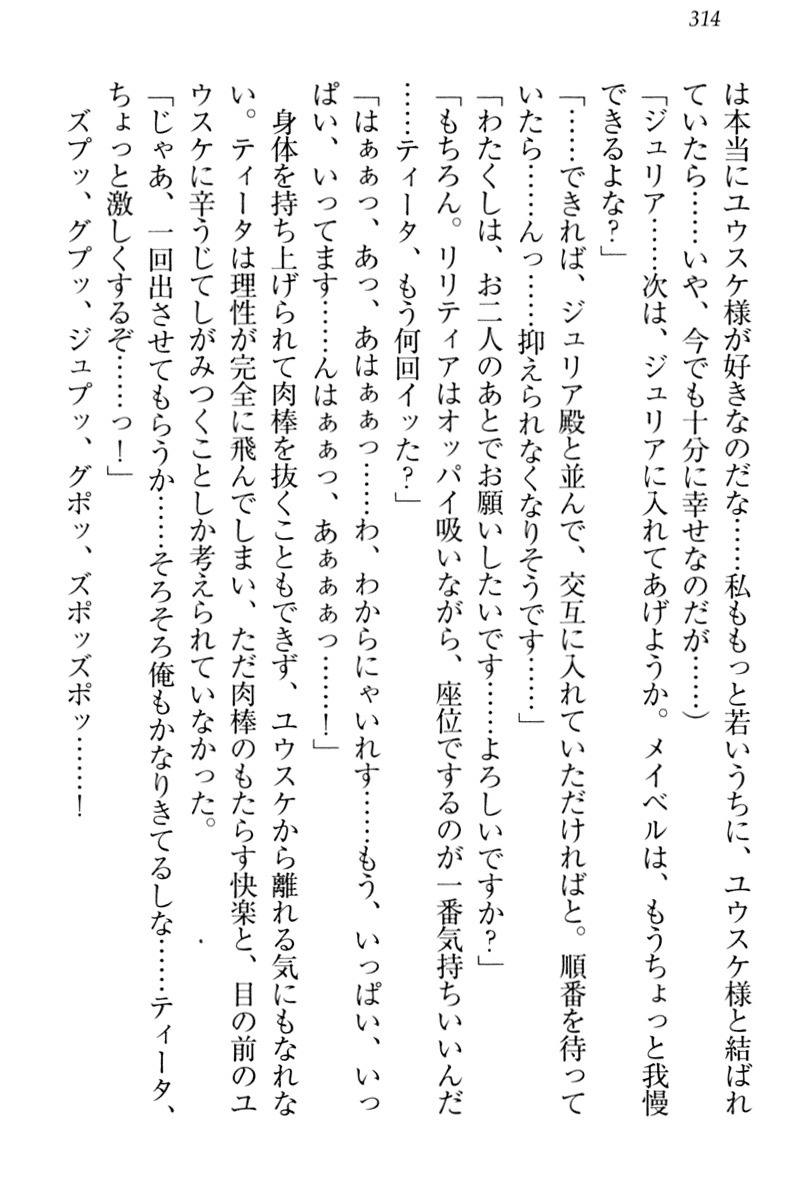 314
は本当にユウスケ様が好きなのだな……私ももっと若いうちに、ユウスケ様と結ばれ
ていたら……いや、今でも十分に幸せなのだが……）
「ジュリア……次は、ジュリアに入れてあげようか。メイベルは、もうちょっと我慢
できるよな？」
「……できれば、ジュリア殿と並んで、交互に入れていただければと。順番を待って
いたら……んっ……抑えられなくなりそうです……」
「わたくしは、お二人のあとでお願いしたいです……よろしいですか？」
「もちろん。リリティアはオッパイ吸いながら、座位でするのが一番気持ちいいんだ
……ティータ、もう何回イッた？」
「はぁぁっ、あっ、あはぁぁっ……わ、わからにゃいれす……もう、いっぱい、いっ
ぱい、いってます……んはぁぁっ、あぁぁぁっ……！」
身体を持ち上げられて肉棒を抜くこともできず、ユウスケから離れる気にもなれな
い。ティータは理性が完全に飛んでしまい、ただ肉棒のもたらす快楽と、目の前のユ
ウスケに辛うじてしがみつくことしか考えられていなかった。
「じゃあ、一回出させてもらうか……そろそろ俺もかなりきてるしな……ティータ、
ちょっと激しくするぞ……っ！」
ズプッ、グプッ、ジュプッ、グポッ、ズポッズポッ……！